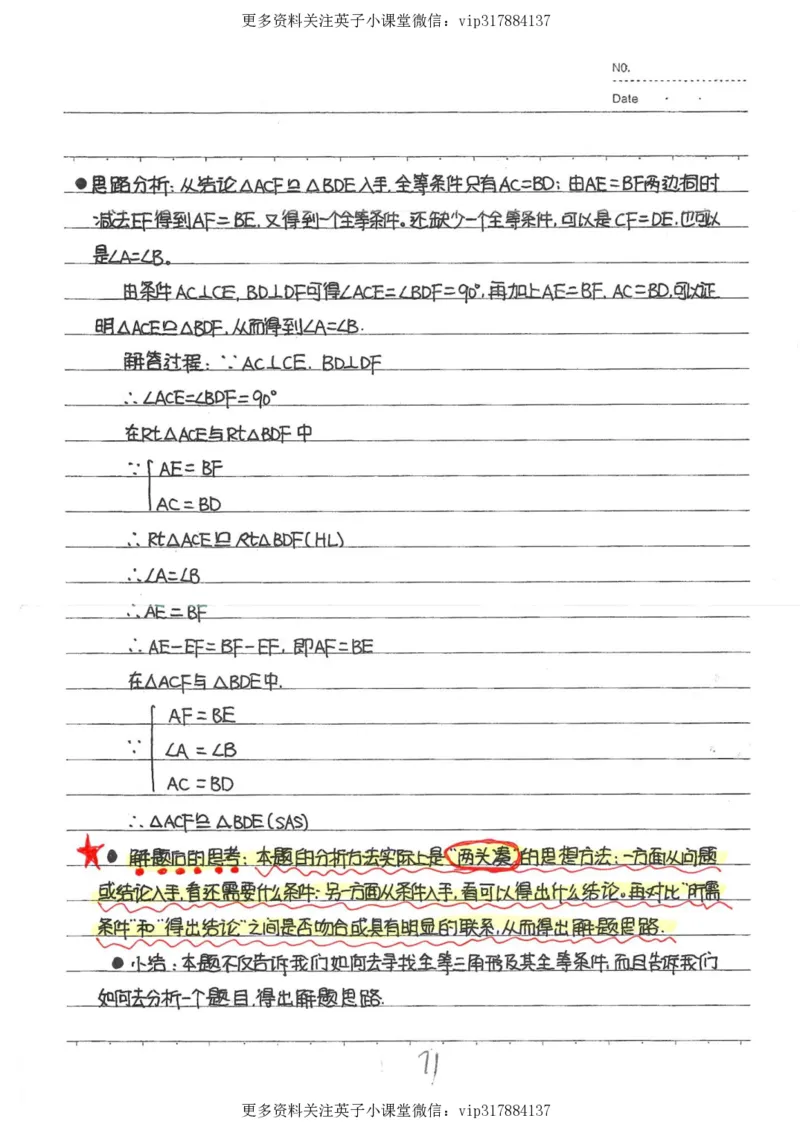 更多资料关注英子小课堂微信：vip317884137
NO.
Date
●思路分析：从结论△ACF≌△BDE入手，全等条件只有AC=BD；由AE=BF两边同时
减去EF得到AF=BE，又得到一个全等条件。还缺少一个全等条件，可以是CF=DE，也可以
是∠A=∠B。
由条件AC⊥CE，BD⊥DF可得∠ACE=∠BDF=90°，再加上AE=BF，AC=BD，可以证
明△ACE≌△BDF，从而得到∠A=∠B.
解答过程：∵AC⊥CE，BD⊥DF
∴∠ACE=∠BDF=90°
在Rt△ACE与Rt△BDF中
∵ AE=BF
AC=BD
∴Rt△ACE≌Rt△BDF(HL)
∴∠A=∠B
∴AE=BF
∴AE-EF=BF-EF，即AF=BE
在△ACF与△BDE中，
AF=BE
∵ ∠A=∠B
AC=BD
∴△ACF≌△BDE(SAS)
★●解题后的思考：本题的分析方法实际上是“两头凑”的思想方法：一方面从问题
或结论入手，看还需要什么条件；另一方面从条件入手，看可以得出什么结论。再对比“所需
条件”和“得出结论”之间是否吻合或具有明显的联系，从而得出解题思路.
●小结：本题不仅告诉我们如何去寻找全等三角形及其全等条件，而且告诉我们
如何去分析一个题目，得出解题思路.
71
更多资料关注英子小课堂微信：vip317884137